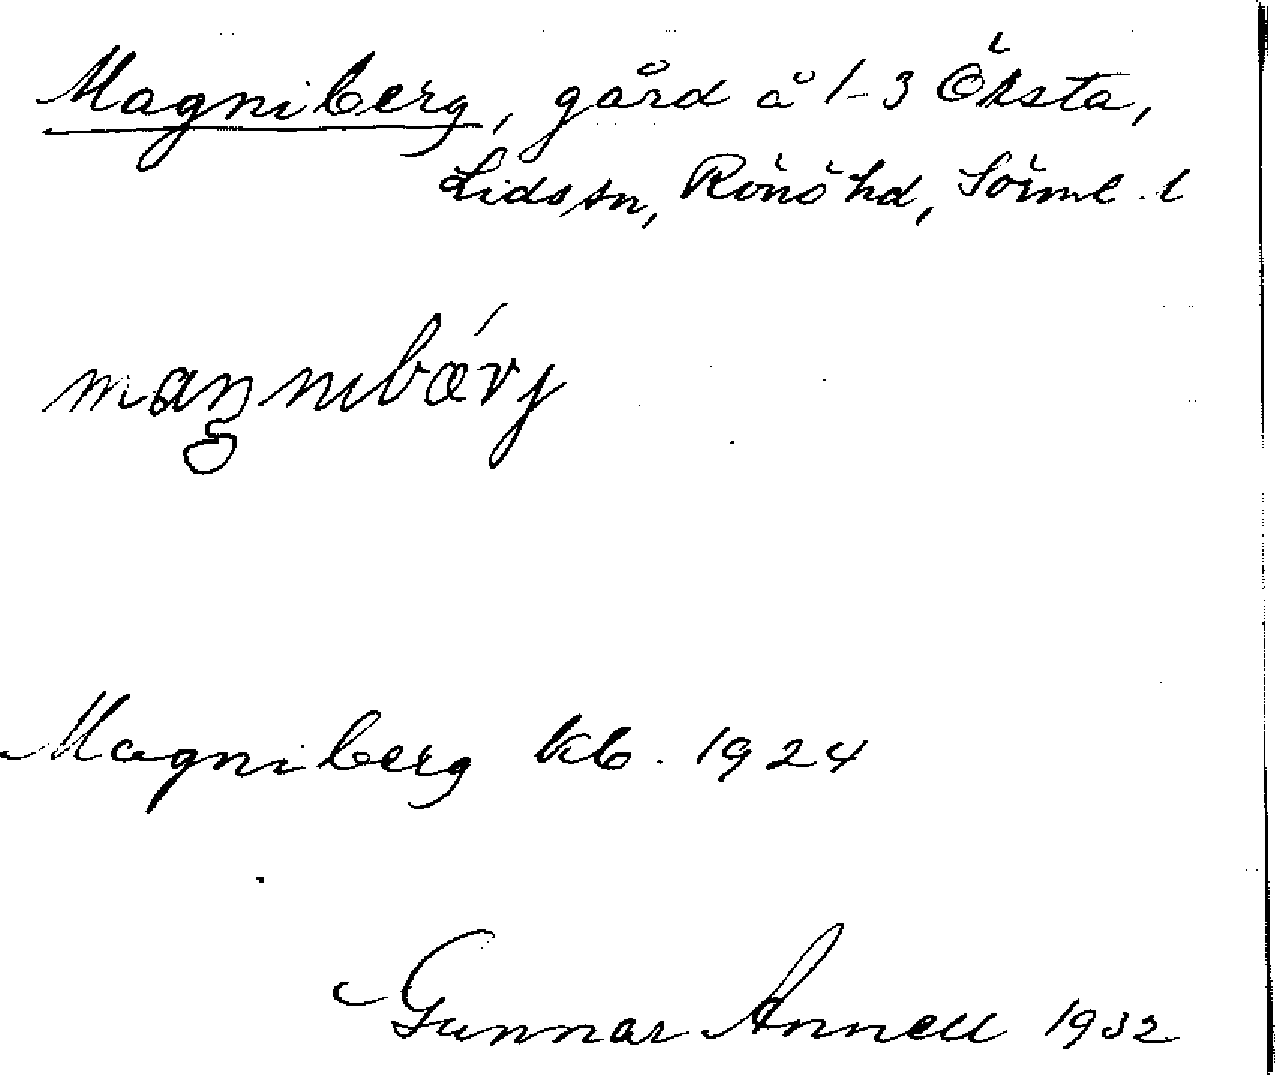 Magniberg, gård å 1-3 Örsta,
Lids sn, Rönö hd, Sörml. l
maŋnibárj
Magniberg kb. 1924
Gunnar Annell 1932